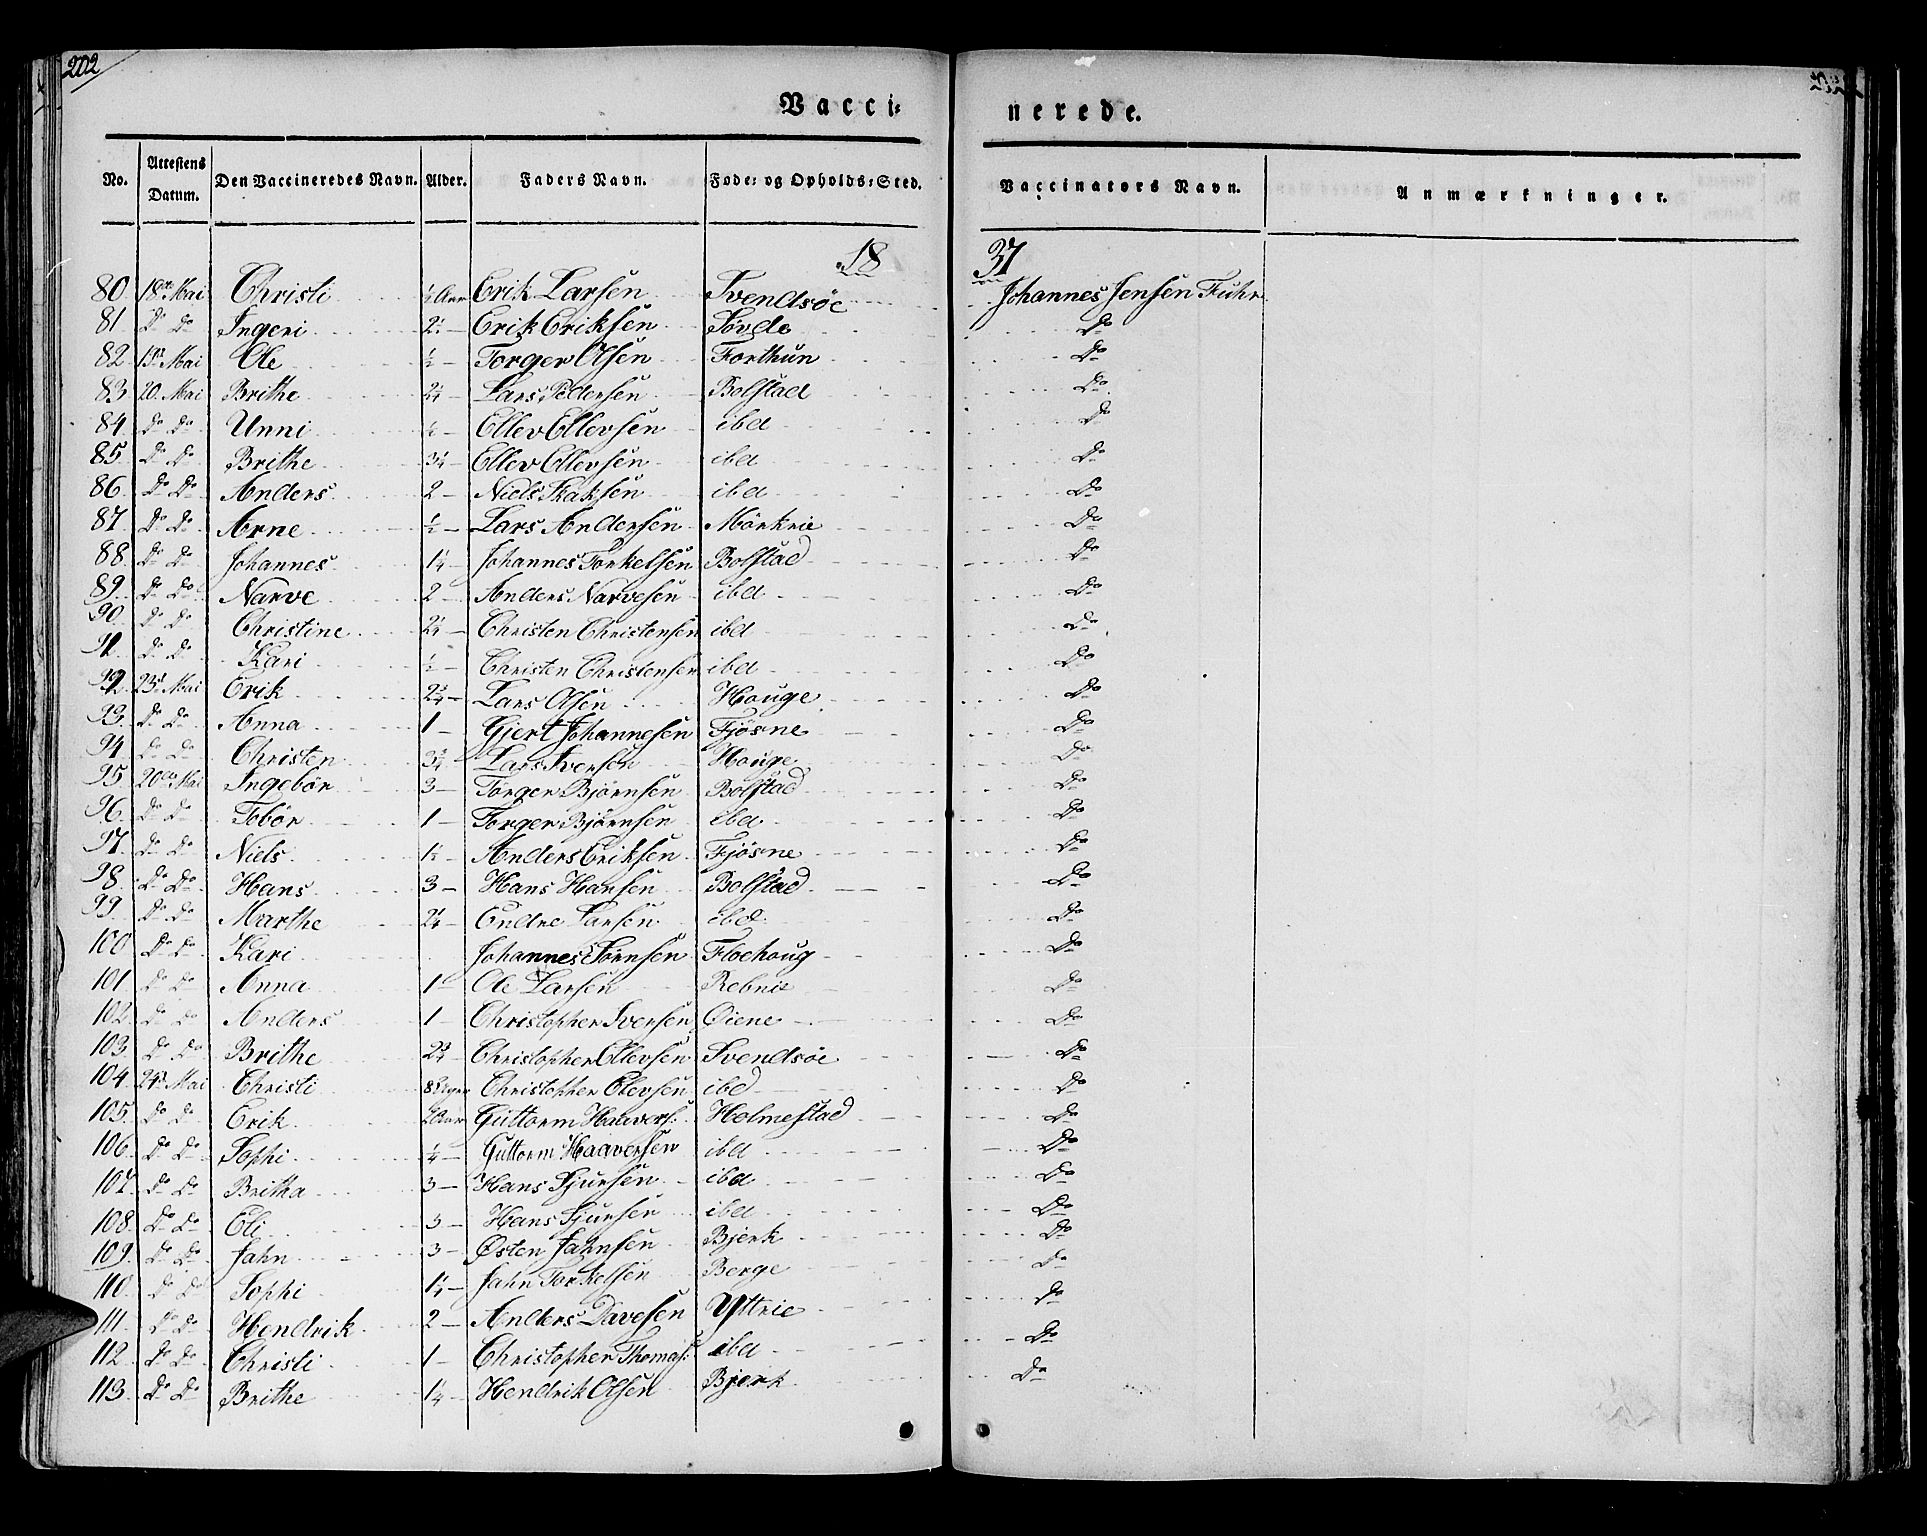 202
Vacci=nerede.
No. Attestens Datum. Den Vaccineredes Navn. Alder. Faders Navn. Føde= og Opholds=Sted. Vaccinators Navn. Anmærkninger.
1837
80 18de Mai Christi ½ Aar Erik Larsen Svendsöe Johannes Jensen Fuhr
81 Do Do Ingeri 2½ - Erik Eriksen Søvde Do
82 Mai Ole ½ - Torger Olsen Forthun Do
83 20 Mai Brithe 2¼ Lars Pedersen Bolstad Do
84 Do Do Unni ½ - Ellev Ellevsen ibd Do
85 Do Do Brithe 3¼ Ellev Ellevsen ibd Do
86 Do Do Anders 2 - Niels ibd Do
87 Do Do Arne ½ - Lars Andersen Mörkrie Do
88 Do Do Johannes 1¼ Johannes Torkelsen Bolstad Do
89 Do Do Narve 2 - Anders Narvesen ibd Do
90 Do Do Christine 2¼ - Christen Christensen ibd Do
91 Do Do Kari ½ - Christen Christensen ibd Do
92 23d Mai Erik 2¾ - Lars Olsen Houge Do
93 Do Do Anna 1 - Gjert Johannesen Fjösne Do
94 Do Do Christen 3¾ Lars Iversen Houge Do
95 20de Mai Ingebör 3 - Torger Bjørnsen Bolstad Do
96 Do Do Tobör 1 - Torger Bjørnsen ibd Do
97 Do Do Niels 1½ - Anders Eriksen Fjösne Do
98 Do Do Hans 3 - Hans Hansen Bolstad Do
99 Do Do Marthe 2¼ Endre Larsen ibd Do
100 Do Do Kari Johannes Flochoug Do
101 Do Do Anna 1 - Ole Larsen Rebnie Do
102 Do Do Anders 1 - Christopher Iversen Øiene Do
103 Do Do Brithe 2¾ - Christopher Ellevsen Svendsöe Do
104 24d Mai Christi 8 Uger Christopher Elevsen ibd Do
105 Do Do Erik Aar Guttorm Haavers: Holmestad Do
106 Do Do Sophi ¼ - Guttorm Haaversen ibd Do
107 Do Do Britha 3 - Hans Sjursen ibd Do
108 Do Do Eli 3 - Hans Sjursen ibd Do
109 Do Do Jahn 3 - Østen Jahnsen Bjerk Do
110 Do Do Sophi 1½ - Jahn Torkelsen Berge Do
111 Do Do Hendrik 2 - Anders Davesen Yttrie Do
112 Do Do Christi 1 - Christopher Thomas: ibd Do
113 Do Do Brithe 1¼ - Hendrik Olsen Bjerk Do